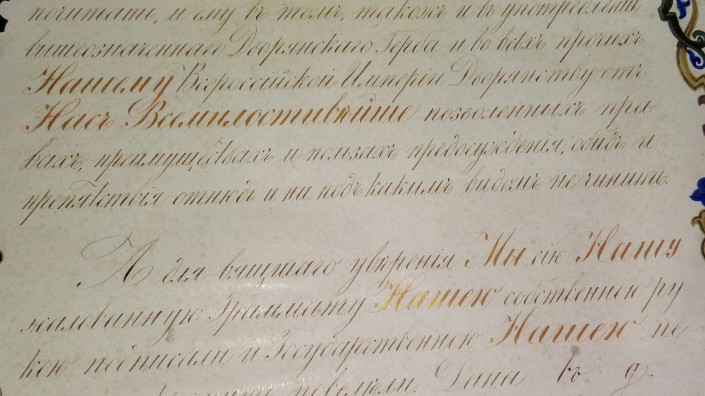 почитати, и ему въ томъ, такожъ и въ употребленiи
вышеозначеннаго Дворянскаго Герба и во всѣхъ прочихъ
Нашему Всероссiйской Имперiи Дворянству отъ
Насъ Всемилостивѣйше позволенныхъ пра-
вахъ, преимуществахъ и пользахъ предосужденiя, обидъ и
препятствiя отнюдь и ни подъ какимъ видомъ не чинить.
А для вящшаго увѣренiя Мы сiю Нашу
жалованную Граммату Нашею собственною ру
кою подписали и Государственною Нашею пе
повелѣли. Дана въ